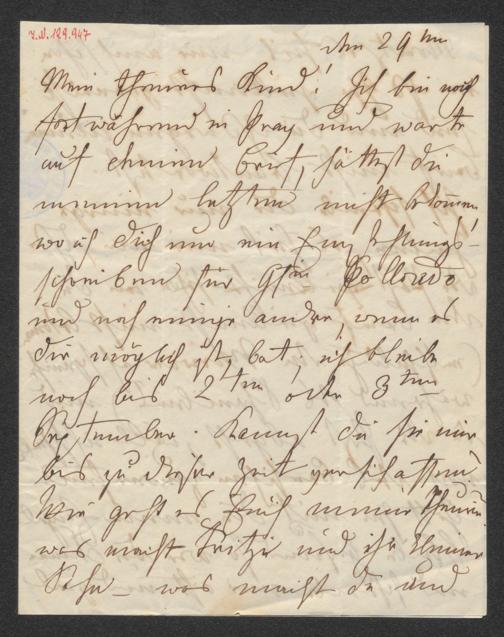 I.N. 129.947
den 29ten
Mein theures Kind! Ich bin noch
fortwährend in Prag und warte
auf einen Brief, hättest du
meinen letzten nicht bekommen
wo ich Dich um ein Empfehlungs-
schreiben für Gfin Colloredo
und noch einige andre, wenn es
dir möglich ist, bat; ich bleibe
noch bis 2ten oder 3ten
September. Kannst du sie mir
bis zu dieser Zeit verschaffen?
Wie geht es Euch meine Theuren
was macht Fritzi und ihr kleiner
Sohn – was machst du und